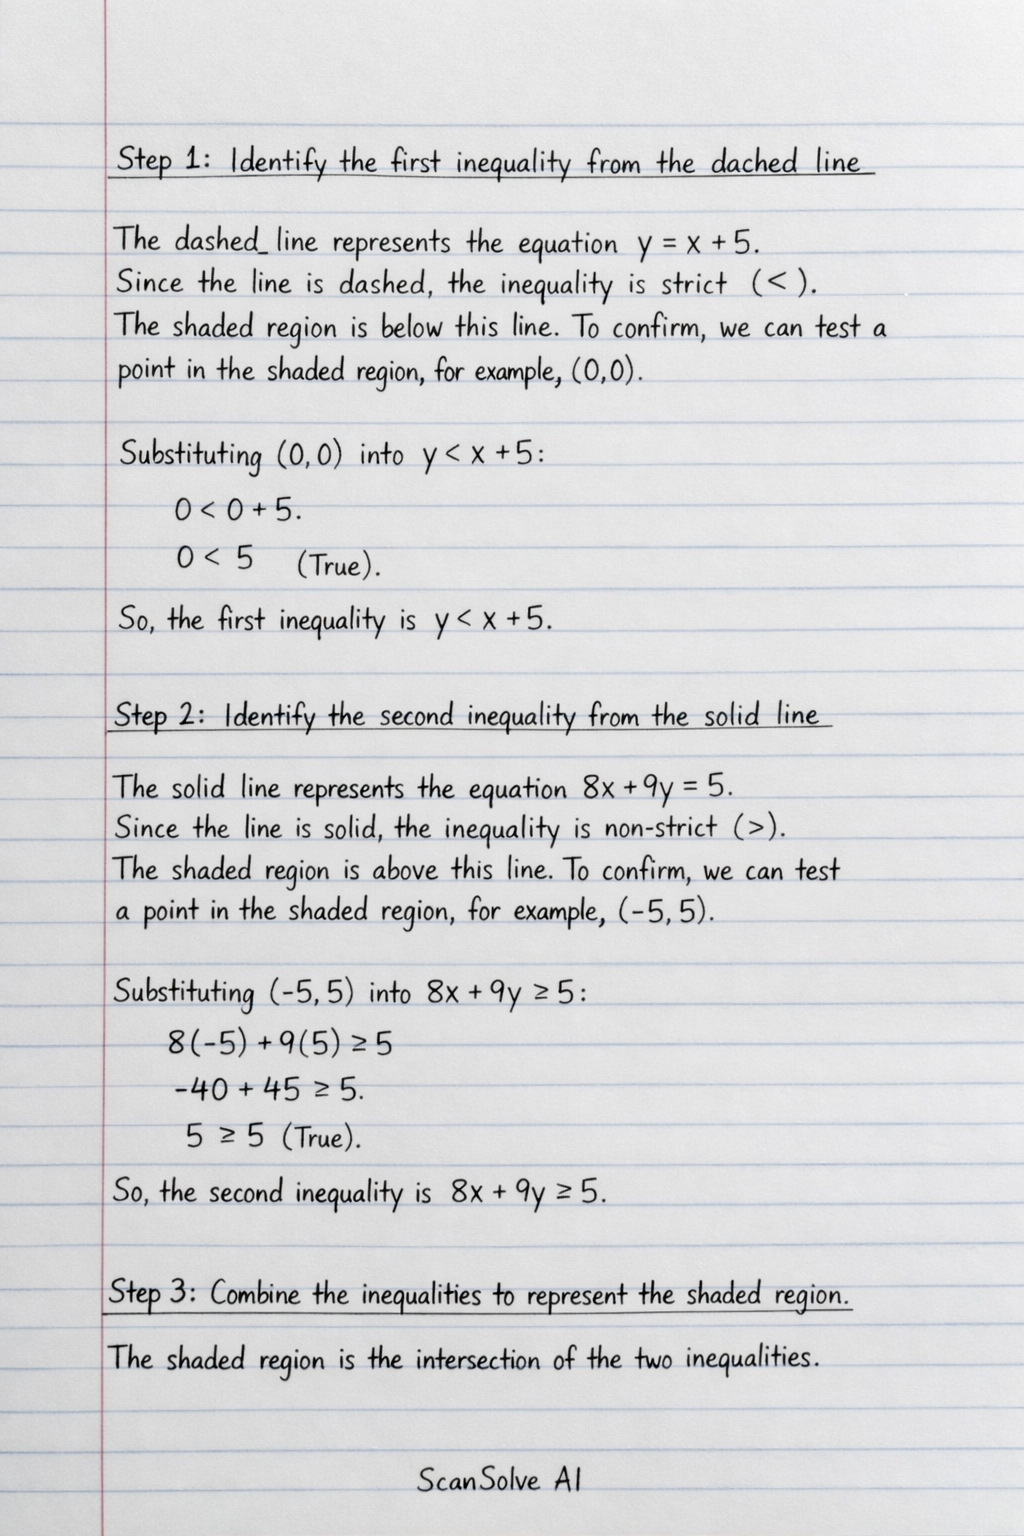 Step 1: Identify the first inequality from the dached line
The dashed_ line represents the equation y = x + 5.
Since the line is dashed, the inequality is strict (<).
The shaded region is below this line. To confirm, we can test a
point in the shaded region, for example, (0,0).
Substituting (0,0) into y < x + 5:
0 < 0 + 5.
0 < 5 (True).
So, the first inequality is y < x + 5.
Step 2: Identify the second inequality from the solid line
The solid line represents the equation 8x + 9y = 5.
Since the line is solid, the inequality is non-strict (>).
The shaded region is above this line. To confirm, we can test
a point in the shaded region, for example, (-5, 5).
Substituting (-5, 5) into 8x + 9y ≥ 5:
8(-5) + 9(5) ≥ 5
-40 + 45 ≥ 5.
5 ≥ 5 (True).
So, the second inequality is 8x + 9y ≥ 5.
Step 3: Combine the inequalities to represent the shaded region.
The shaded region is the intersection of the two inequalities.
ScanSolve AI